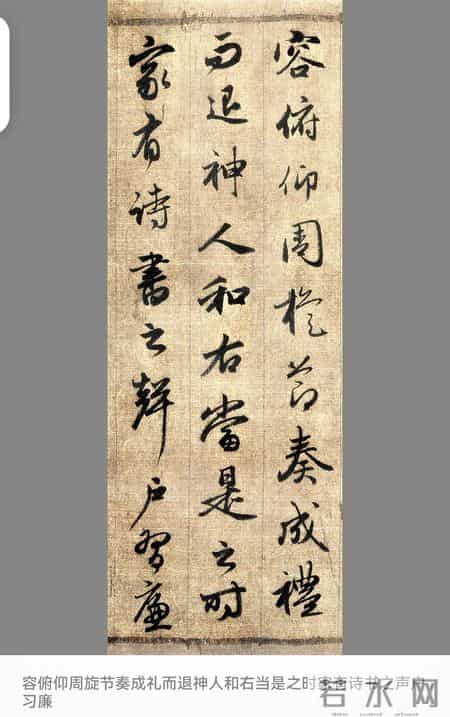 容俯仰周旋節奏成禮
而退神人和右當是之時
家有詩書之聲戶習廉
容俯仰周旋节奏成礼而退神人和右当是之时家有诗书之声户
习廉
若水网